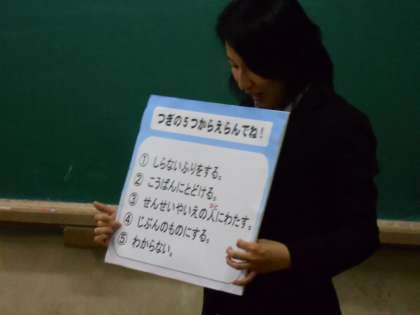 つぎの5つからえらんでね!
① しらないふりをする。
② こうばんにとどける。
③ せんせいやいえの人にわたす。
④ じぶんのものにする。
⑤ わからない。